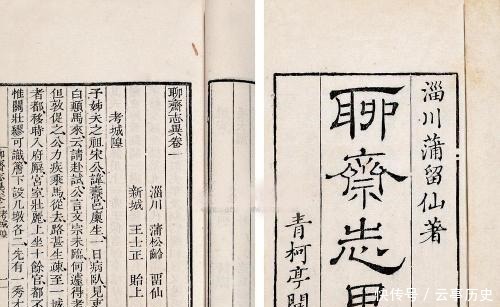 淄川蒲留仙著
聊齋志
青柯亭開
聊齋志異卷一
淄川 蒲松齡 留仙
新城 王士正 貽上
考城隍
予姊丈之祖宋公諱燾邑廩生一日病臥見吏
白顛馬來云請赴試公言文宗未臨何遽得考
但敦促之公力疾乘馬從去路甚生疎至一城
者都移時入府廨宮室壯麗上坐十餘官都不
惟關壯繆可識簷下設几墩各二先有一秀才
聊齋志異卷一 考城隍
快传号 / 云亭历史